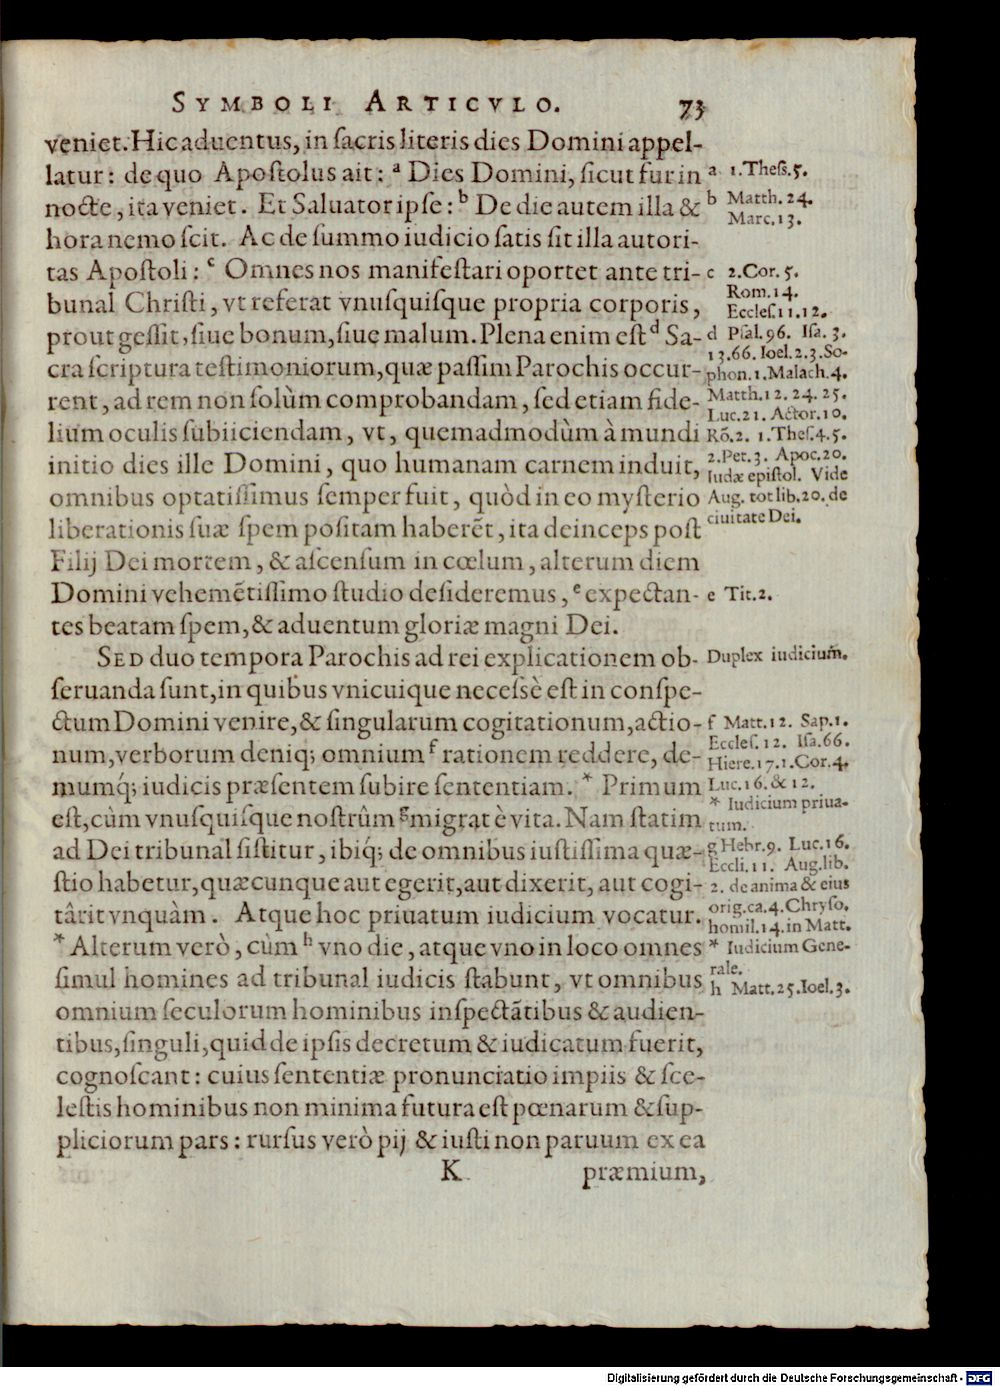 SYMBOLI ARTICVLO. 73
veniet. Hic aduentus, in ſacris literis dies Domini appel-
latur: de quo Apoſtolus ait: ᵃ Dies Domini, ſicut fur in
nocte, ita veniet. Et Saluator ipſe: ᵇ De die autem illa &
hora nemo ſcit. Ac de ſummo iudicio ſatis ſit illa autori-
tas Apoſtoli: ᶜ Omnes nos manifeſtari oportet ante tri-
bunal Chriſti, vt referat vnuſquiſque propria corporis,
prout geſſit, ſiue bonum, ſiue malum. Plena enim eſt ᵈ Sa-
cra ſcriptura teſtimoniorum, quæ paſſim Parochis occur-
rent, ad rem non ſolùm comprobandam, ſed etiam fide-
lium oculis ſubiiciendam, vt, quemadmodùm à mundi
initio dies ille Domini, quo humanam carnem induit,
omnibus optatiſſimus ſemper fuit, quòd in eo myſterio
liberationis ſuæ ſpem poſitam haberẽt, ita deinceps poſt
Filij Dei mortem, & aſcenſum in cœlum, alterum diem
Domini vehemẽtiſſimo ſtudio deſideremus, ᵉ expectan-
tes beatam ſpem, & aduentum gloriæ magni Dei.
SED duo tempora Parochis ad rei explicationem ob-
ſeruanda ſunt, in quibus vnicuique neceſsè eſt in conſpe-
ctum Domini venire, & ſingularum cogitationum, actio-
num, verborum deniq; omnium ᶠ rationem reddere, de-
mumq́; iudicis præſentem ſubire ſententiam. * Primum
eſt, cùm vnuſquiſque noſtrûm ᵍ migrat è vita. Nam ſtatim
ad Dei tribunal ſiſtitur, ibiq́; de omnibus iuſtiſſima quæ-
ſtio habetur, quæcunque aut egerit, aut dixerit, aut cogi-
târit vnquàm. Atque hoc priuatum iudicium vocatur.
* Alterum verò, cùm ʰ vno die, atque vno in loco omnes
ſimul homines ad tribunal iudicis ſtabunt, vt omnibus
omnium ſeculorum hominibus inſpectãtibus & audien-
tibus, ſinguli, quid de ipſis decretum & iudicatum fuerit,
cognoſcant: cuius ſententiæ pronunciatio impiis & ſce-
leſtis hominibus non minima futura eſt pœnarum & ſup-
pliciorum pars: rurſus verò pij & iuſti non paruum ex ea
K præmium,
a 1. Theſſ. 5.
b Matth. 24.
Marc. 13.
c 2. Cor. 5.
Rom. 14.
Eccleſ. 11. 12.
d Pſal. 96. Iſa. 3.
13. 66. Ioel. 2. 3. So-
phon. 1. Malach. 4.
Matth. 12. 24. 25.
Luc. 21. Actor. 10.
Rõ. 2. 1. Theſ. 4. 5.
2. Pet. 3. Apoc. 20.
Iudæ epiſtol. Vide
Aug. tot lib. 20. de
ciuitate Dei.
e Tit. 2.
Duplex iudicium̃.
f Matt. 12. Sap. 1.
Eccleſ. 12. Iſa. 66.
Hiere. 17. 1. Cor. 4.
Luc. 16. & 12.
* Iudicium priua-
tum.
g Hebr. 9. Luc. 16.
Eccli. 11. Aug. lib.
2. de anima & eius
orig. ca. 4. Chryſo.
homil. 14. in Matt.
* Iudicium Gene-
rale.
h Matt. 25. Ioel. 3.
Digitalisierung gefördert durch die Deutsche Forschungsgemeinschaft - DFG